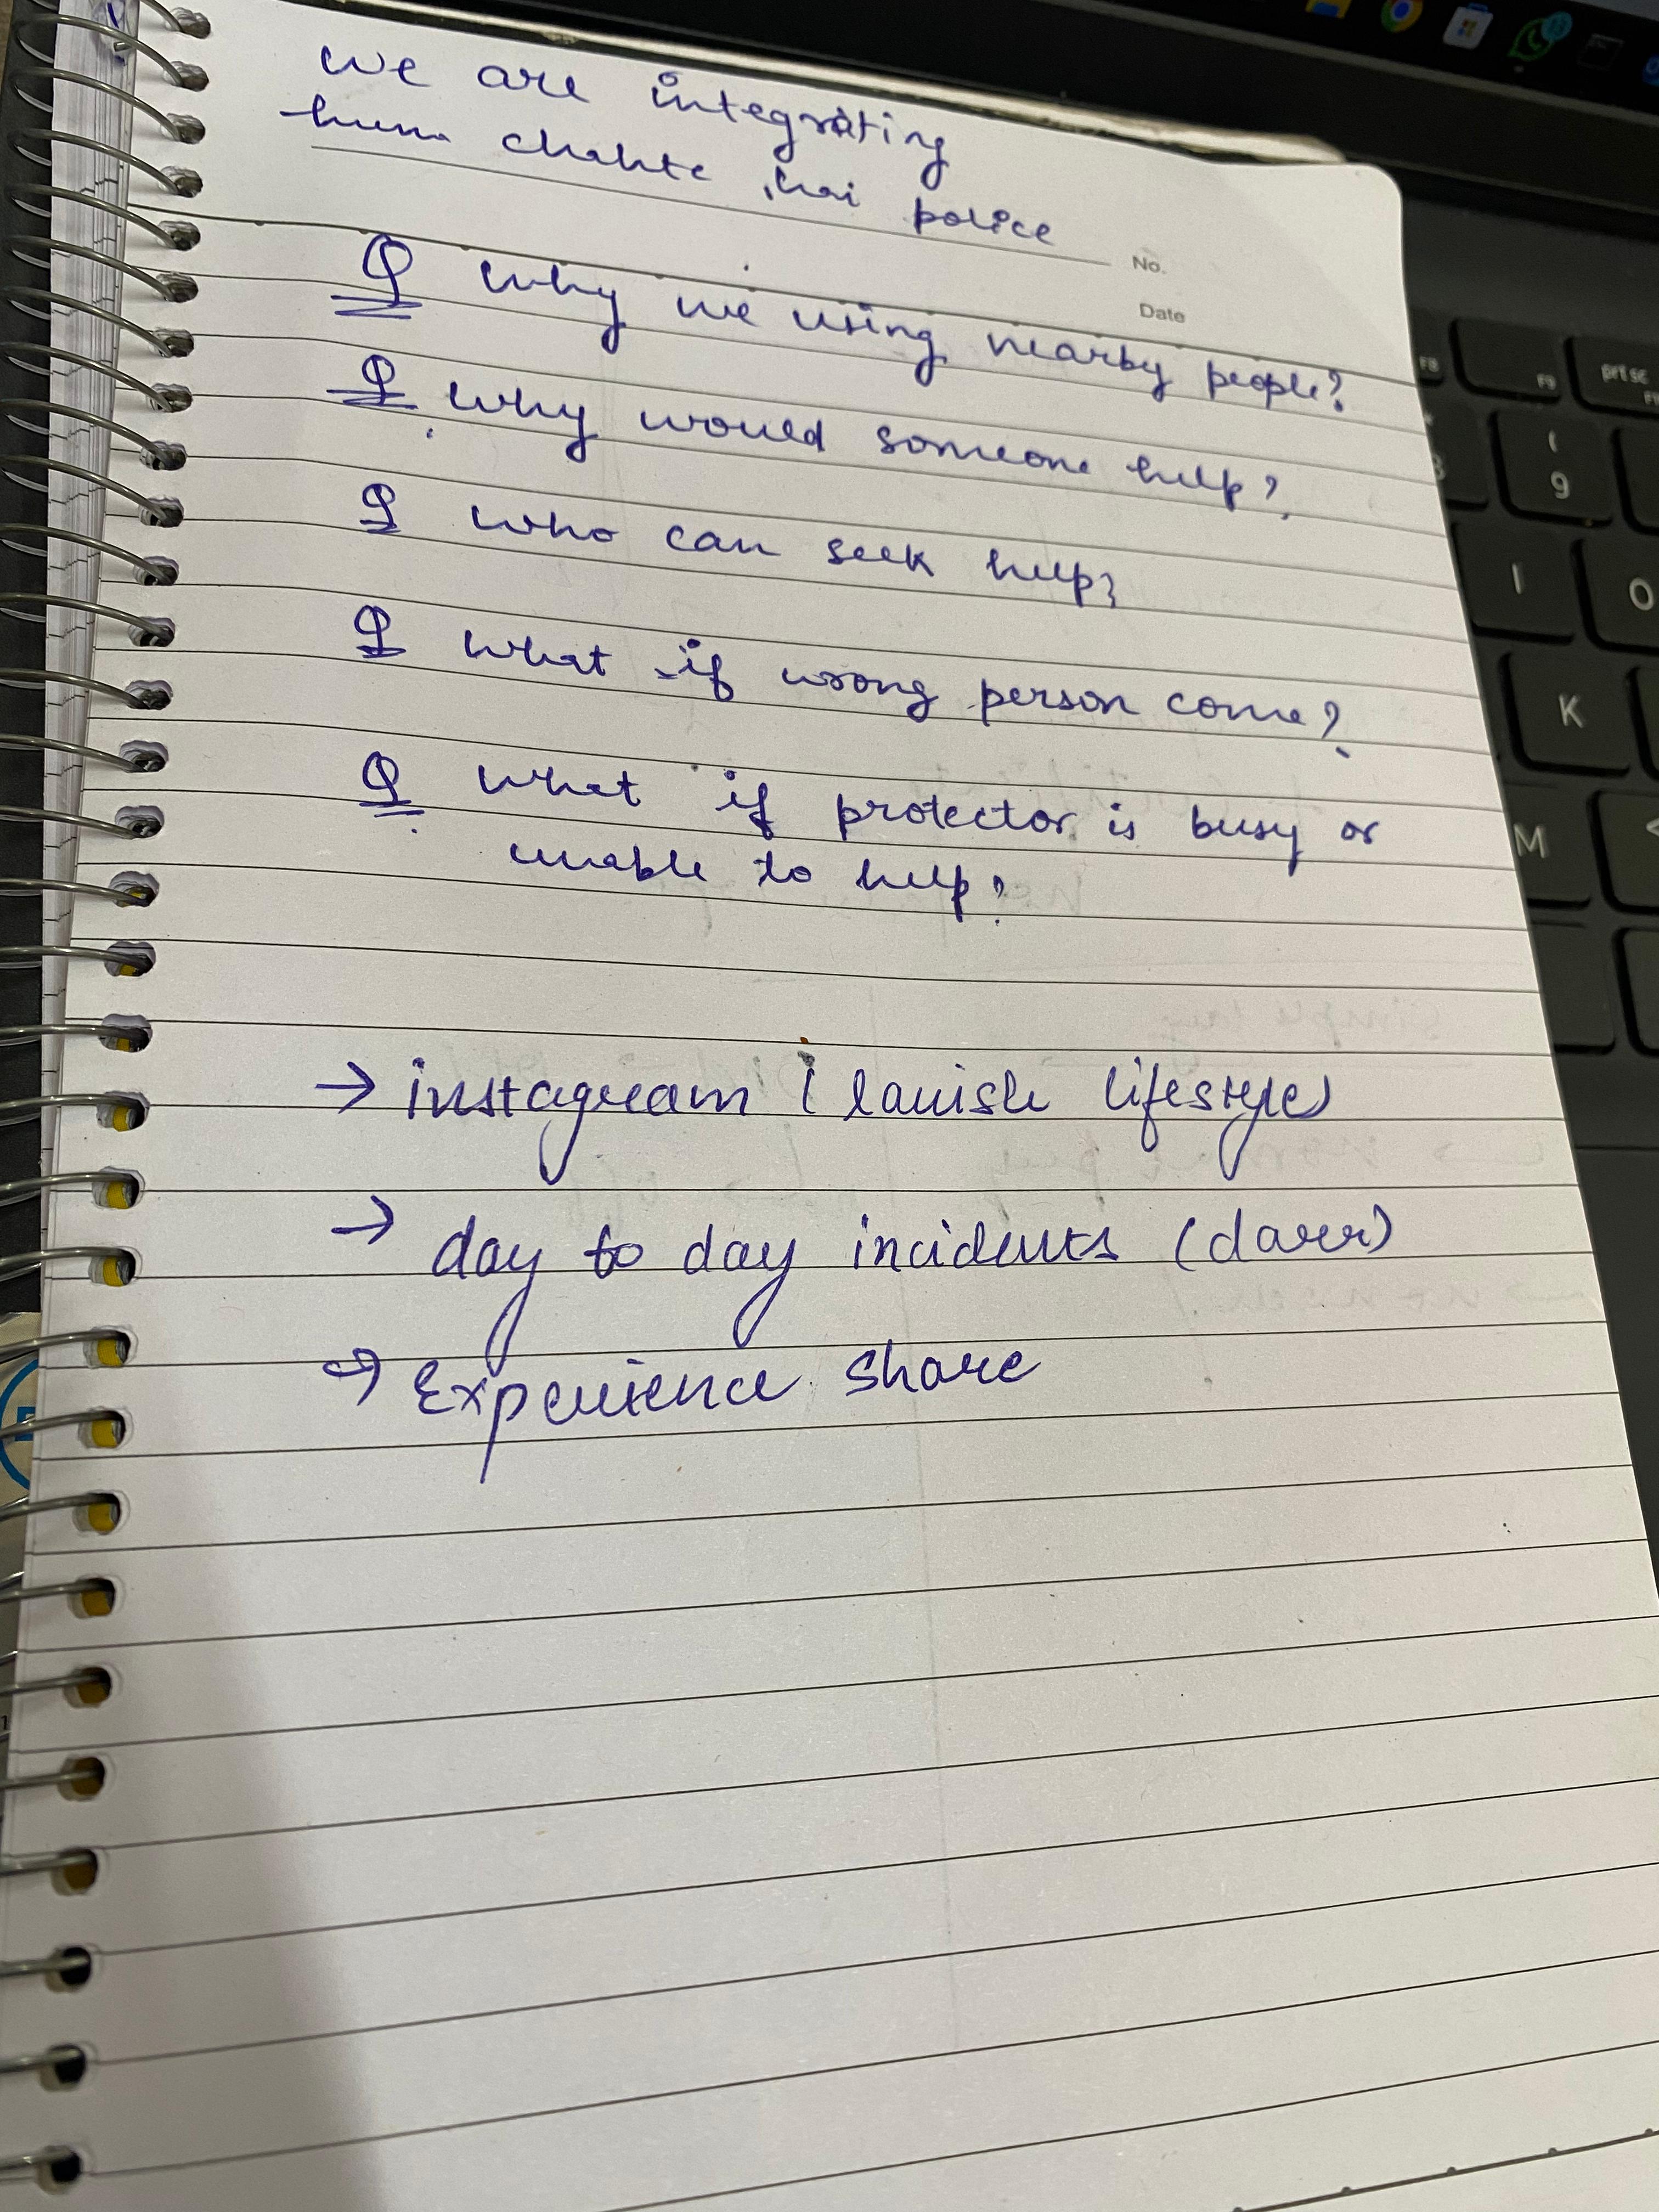 we are integrating
hum chahte hai police
No.
Date
Q why we using nearby people?
Q why would someone help?
Q who can seek help?
Q what if wrong person come?
Q what if protector is busy or
unable to help?
→ instagream (lavish lifestyle)
→ day to day incidents (darr)
→ Experience share
F8
F9
prt sc
(
9
I
O
K
M
<